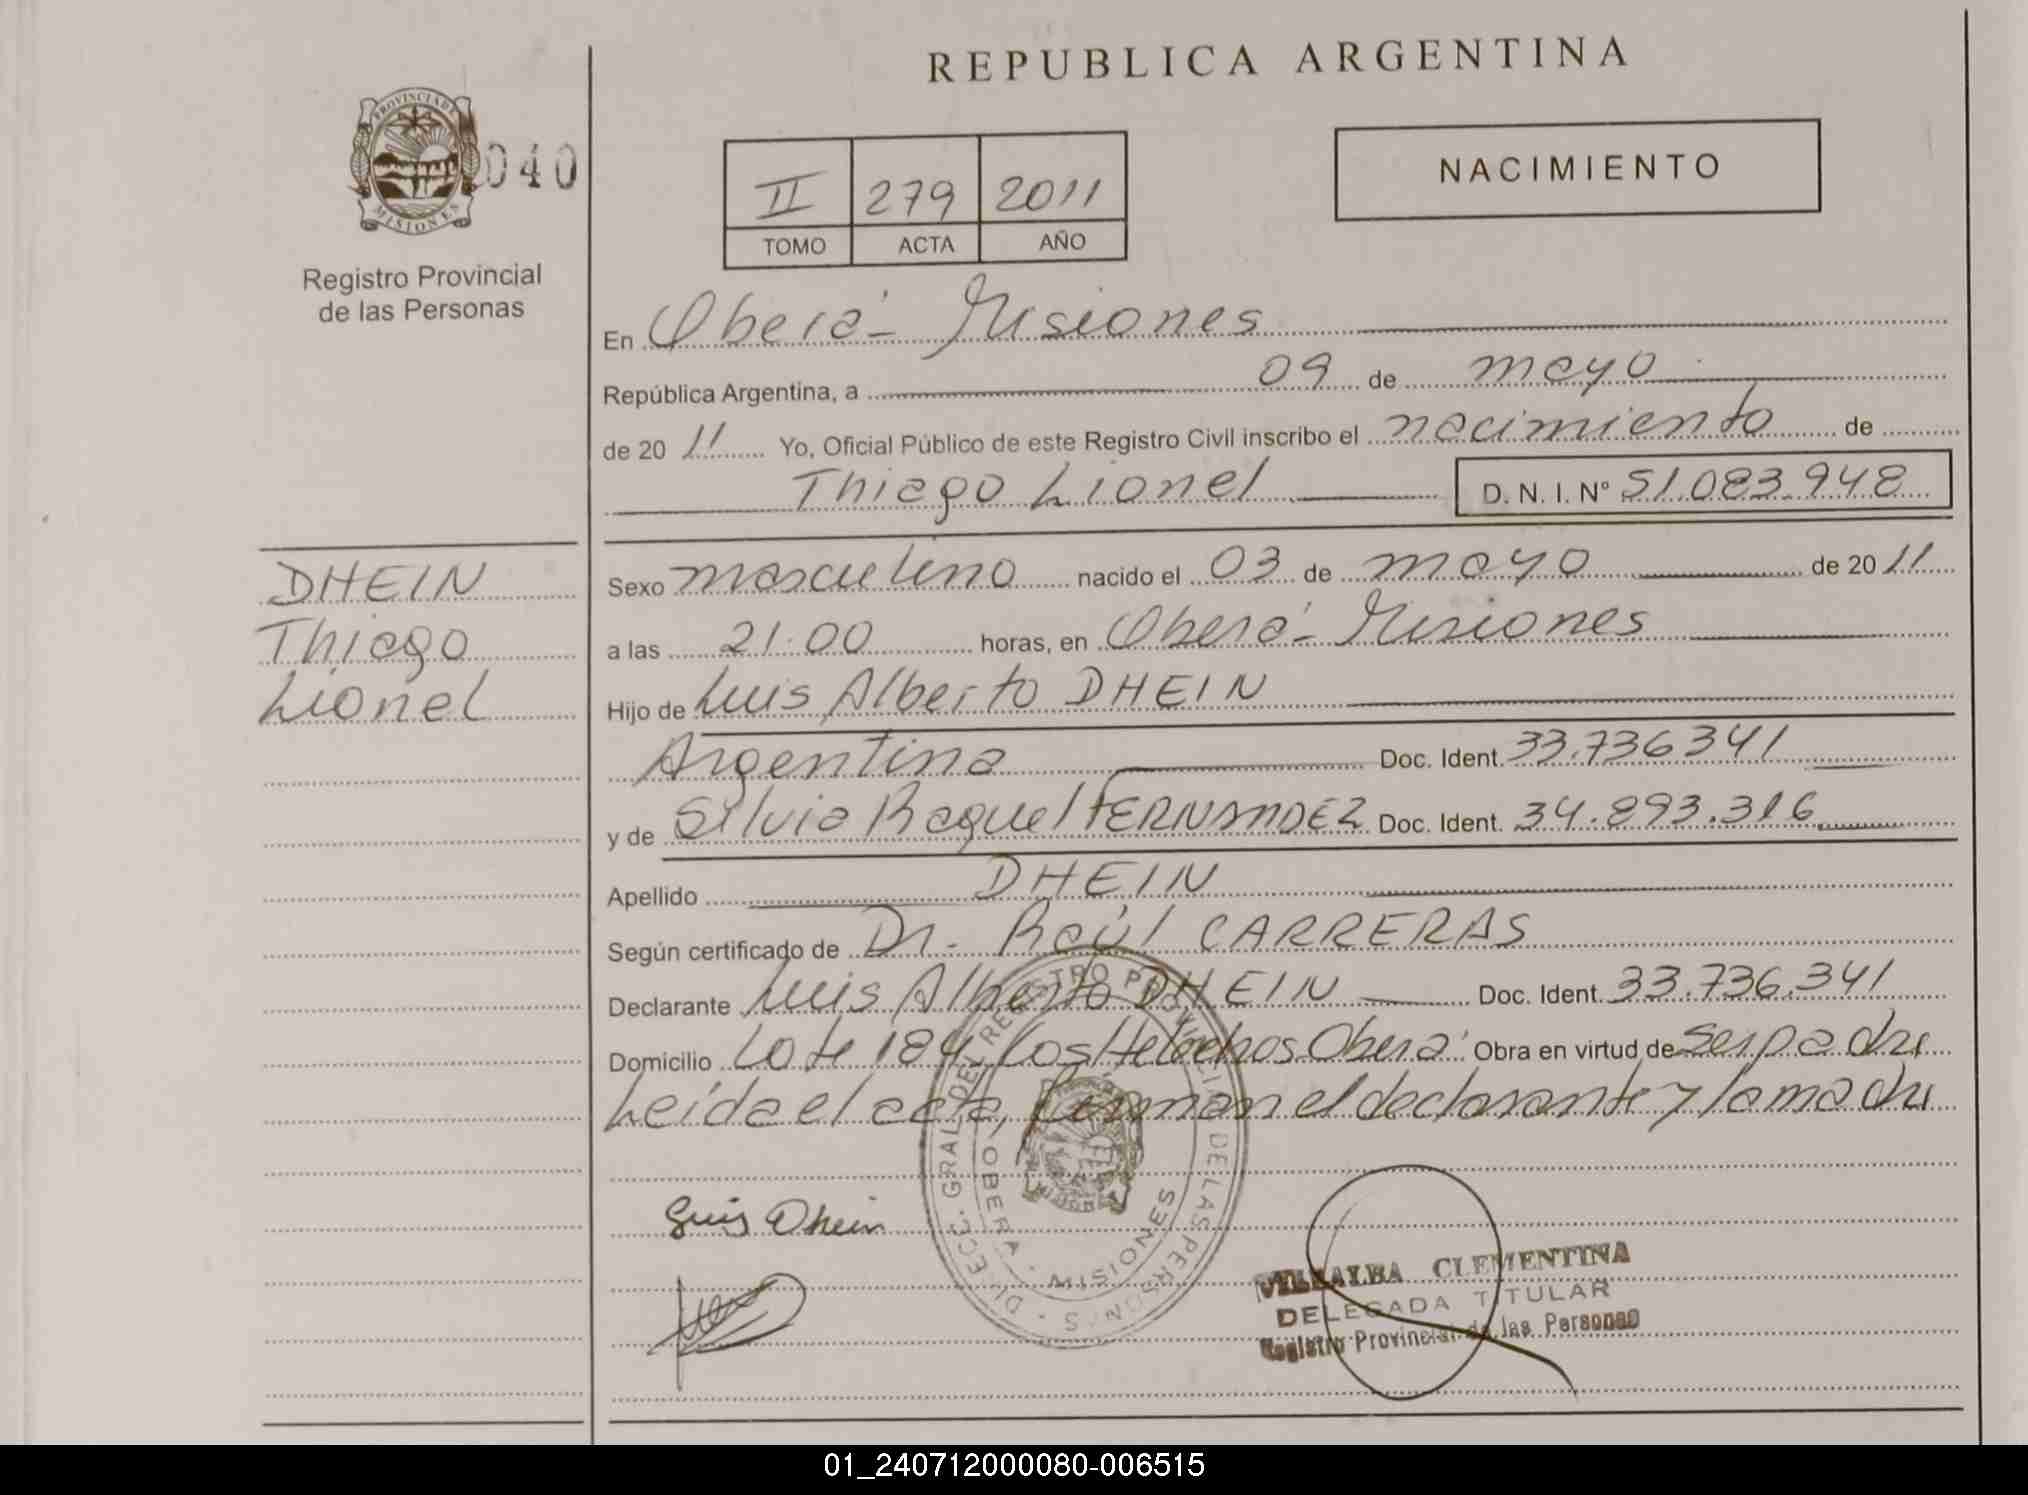 REPUBLICA ARGENTINA
PROVINCIA DE MISIONES
040
Registro Provincial
de las Personas
II 279 2011
TOMO ACTA AÑO
NACIMIENTO
En Oberá - Misiones
República Argentina, a 09 de mayo
de 20 11 Yo, Oficial Público de este Registro Civil inscribo el nacimiento de
Thiago Lionel D. N. I. Nº 51.083.948
DHEIN
Thiago
Lionel
Sexo masculino nacido el 03 de mayo de 20 11
a las 21:00 horas, en Oberá - Misiones
Hijo de Luis Alberto DHEIN
Argentina Doc. Ident. 33.736341
y de Silvia Raquel FERNANDEZ Doc. Ident. 34.893.316
Apellido DHEIN
Según certificado de Dr. Raúl CARRERAS
Declarante Luis Alberto DHEIN Doc. Ident. 33.736.341
Domicilio Lote 184, Los Helechos Oberá Obra en virtud de ser padre
Leída el acta, firman el declarante y la madre
Luis Dhein
DIREC. GRAL. DEL REGISTRO PROVINCIAL DE LAS PERSONAS
OBERA - MISIONES
VILLALBA CLEMENTINA
DELEGADA TITULAR
Registro Provincial de las Personas
01_240712000080-006515